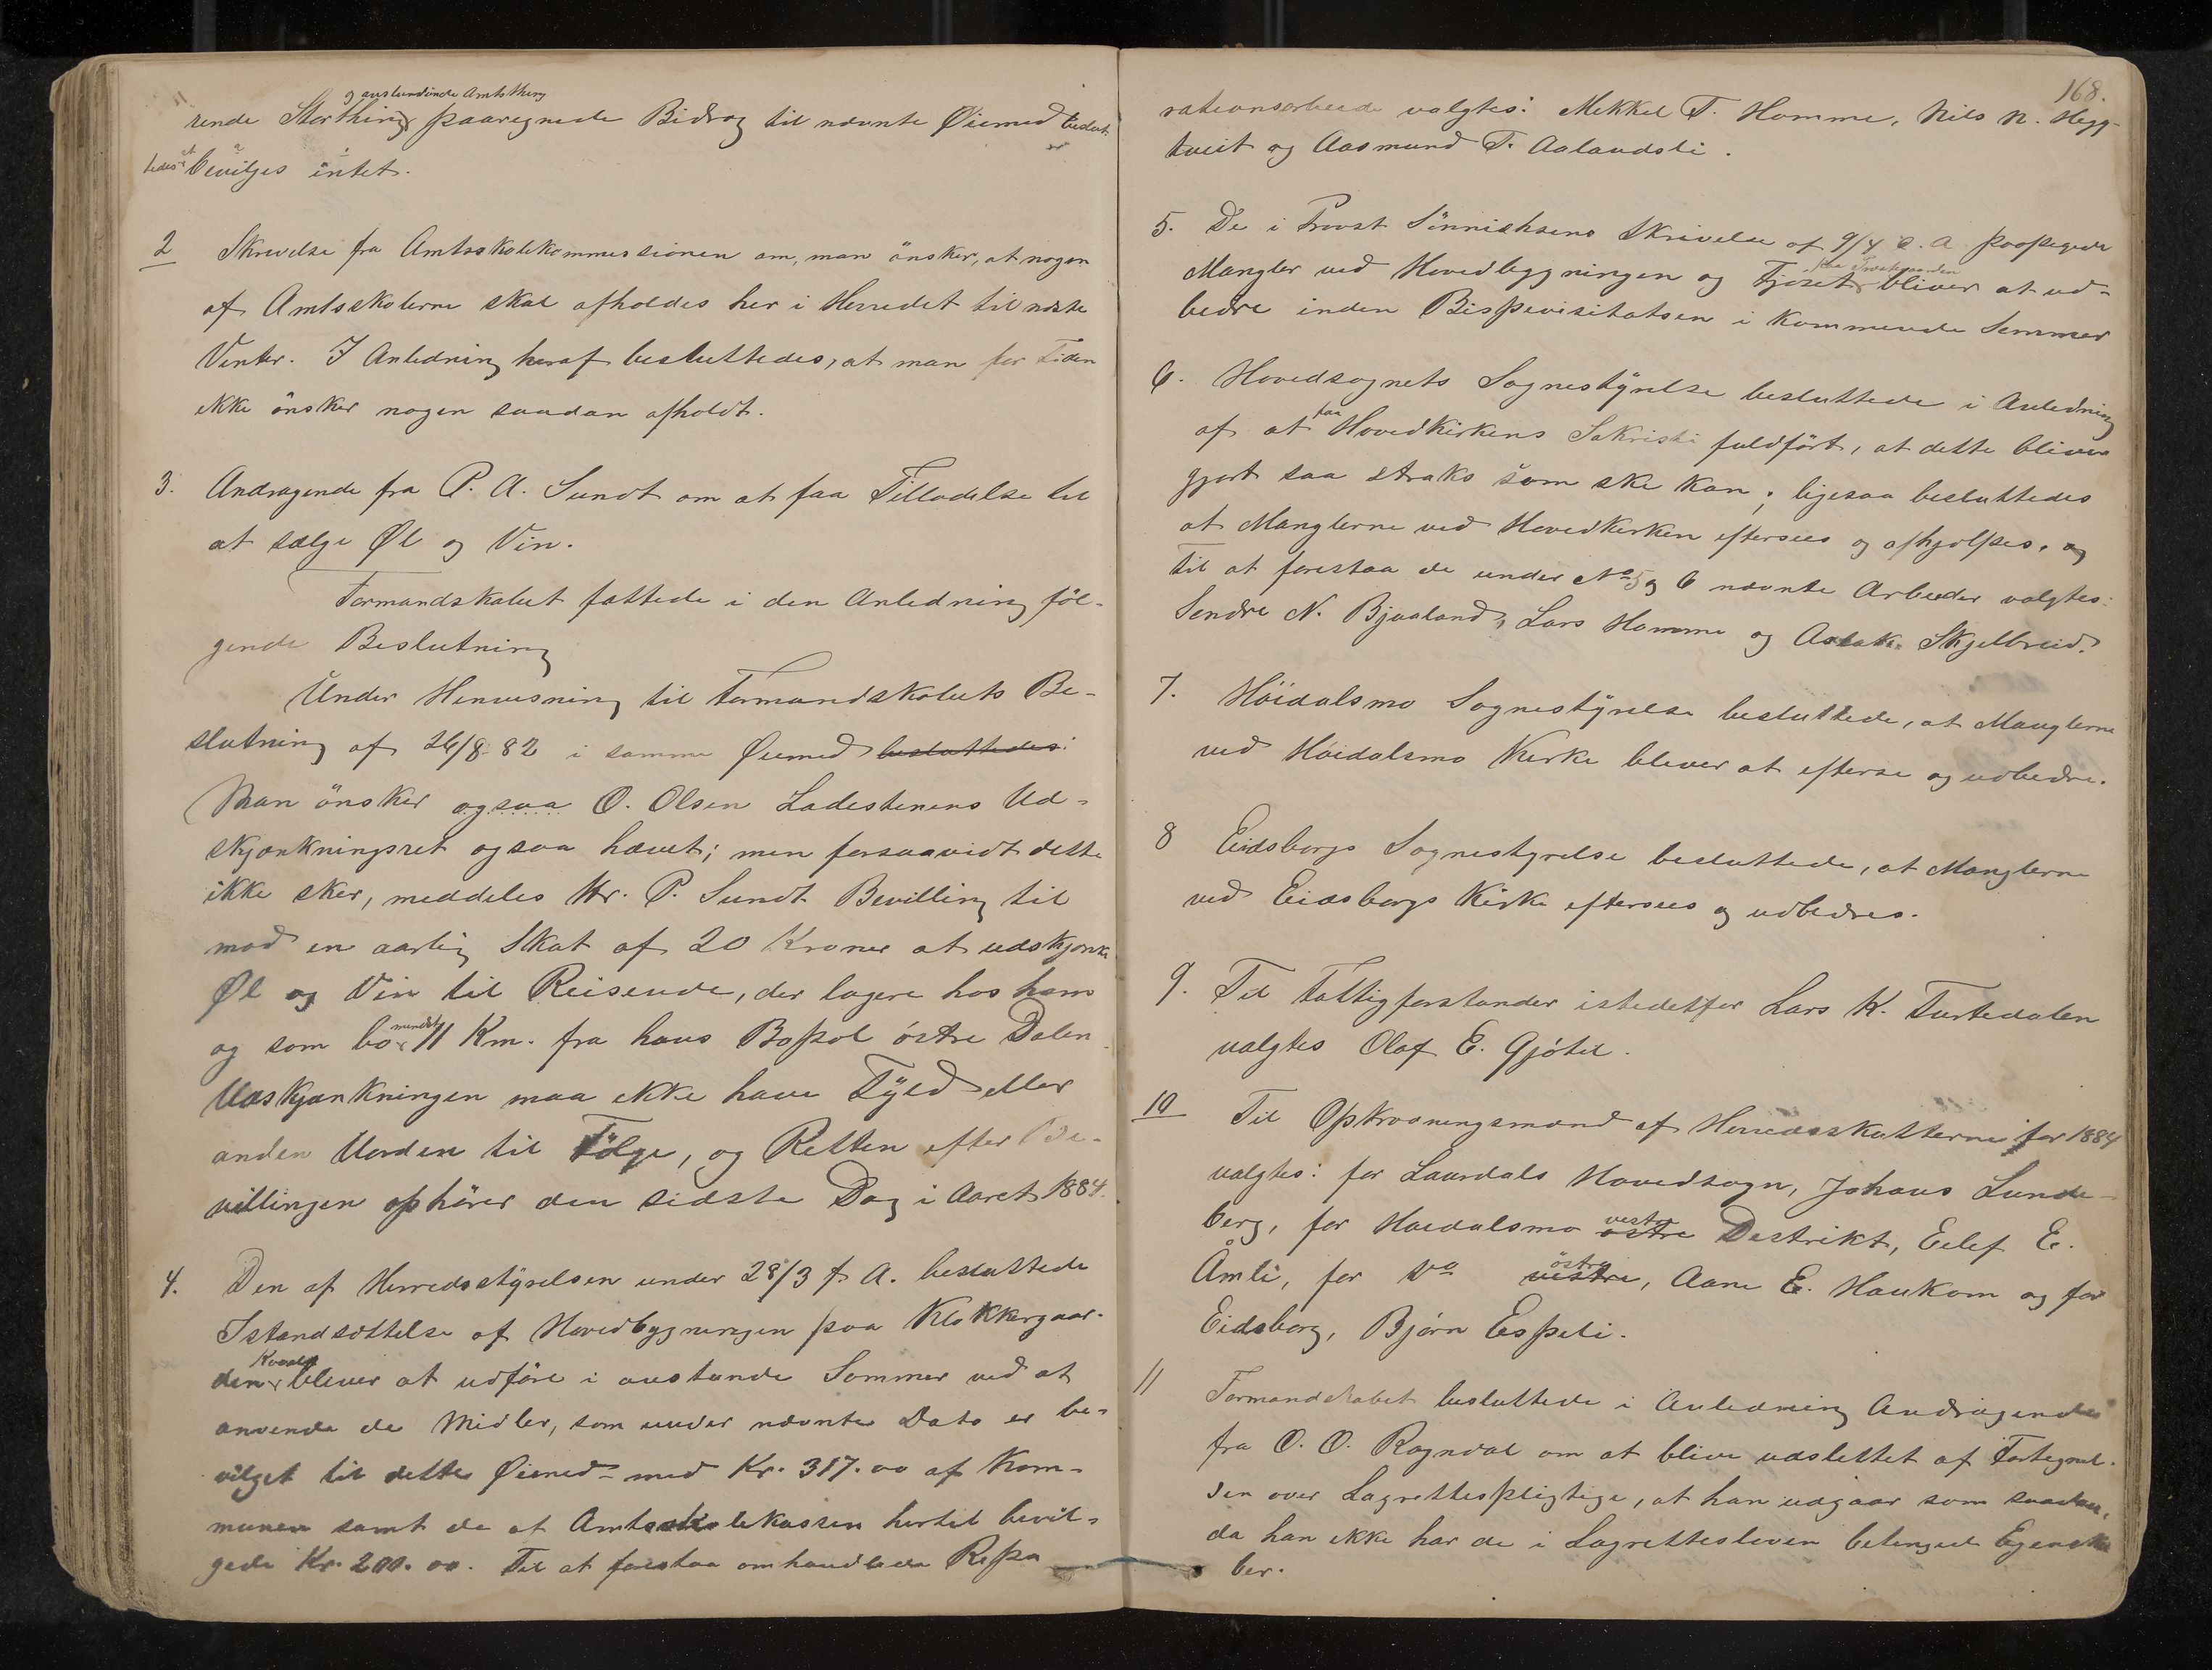 og anstundende Amtsthing
rende Storthing paaregnede Bidrag til nævnte Øiemed beslut-
tedes at bevilges intet.
2 Skrivelse fra Amtsskolekommissionen om, man önsker, at nogen
af Amtsskolerne skal afholdes her i Herredet til næste
Vinter. I Anledning heraf besluttedes, at man for Tiden
ikke önsker nogen saadan afholdt.
3. Andragende fra P. A. Sundt om at faa Tilladelse til
at sælge Øl og Vin.
Formandskabet fattede i den Anledning föl-
gende Beslutning
Under Henvisning til Formandskabets Be-
slutning af 26/8 82 i samme Øiemed besluttedes:
Man önsker ogsaa O. Olsen Ladestenens Ud-
skjænkningsret ogsaa hævet; men forsaavidt dette
ikke sker, meddeles Hr. P. Sundt Bevilling til
mod en aarlig Skat af 20 Kroner at udskjænke
Øl og Vin til Reisende, der logere hos ham
og som bo mindst 11 Km. fra hans Bopæl östre Dalen.
Udskjænkningen maa ikke have Fyld eller
anden Uorden til Fölge, og Retten efter Be-
villingen ophörer den sidste Dag i Aaret 1884.
4. Den af Herredsstyrelsen under 28/3 f. A. besluttede
Istandsættelse af Hovedbygningen paa Klokkergaar-
den Kvaale bliver at udföre i anstunde Sommer ved at
anvende de Midler, som under nævnte Dato er be-
vilget til dette Øiemed med Kr. 317.00 af Kom-
munen samt de af Amtsskolekassen hertil bevil-
gede Kr. 200.00. Til at forestaa omhandlede Repa
168.
rationsarbeide valgtes: Mekkel T. Homme, Nils N. Hegg-
tveit og Aasmund T. Aalandsli.
5. De i Provst Sinnichsens Skrivelse af 9/4 d. A. paapegede
Mangler ved Hovedbyggningen og Fjöset paa Prestegaarden bliver at ud-
bedre inden Bispevisitatsen i kommende Sommer
6. Hovedsognets Sognestyrelse besluttede i Anledning
af at faa Hovedkirkens Sakristi fuldfört, at dette bliver
gjort saa straks som ske kan; ligesaa besluttedes
at Manglerne ved Hovedkirken eftersees og afhjælpes. og
Til at forestaa de under No 5 og 6 nævnte Arbeider valgtes:
Sondre N. Bjaaland, Lars Homme og Aslak Skjelbreid.
7. Höidalsmo Sognestyrelse besluttede, at Manglerne
ved Höidalsmo Kirke bliver at efterse og udbedre.
8 Eidsborgs Sognestyrelse besluttede, at Manglerne
ved Eidsborgs Kirke eftersees og udbedres.
9. Til Fattigforstander istedetfor Lars K. Turtedalen
valgtes Olaf E. Gjötil.
10 Til Opkrævningsmænd af Herredsskatterne for 1884
valgtes: for Laurdals Hovedsogn, Johans Lunde-
berg, for Höidalsmo östre vestre Distrikt, Eilef E.
Åmli, for do vestre östre, Aane E. Haukom og for
Eidsborg, Björn Espeli.
11 Formandskabet besluttede i Anledning Andragende
fra O. O. Rogndal om at blive udslettet af Fortegnel-
sen over Lagrettespligtige, at han udgaar som saadan,
da han ikke har de i Lagrettesloven betingede Egenska
ber.